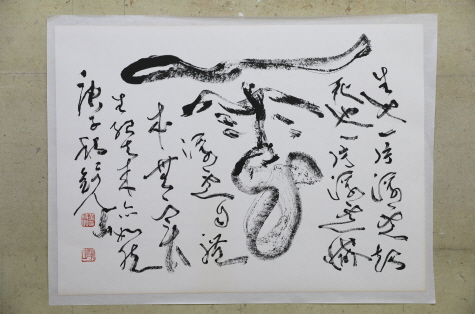 生也一片浮雲起
死也一片浮雲滅
雲
浮雲自體
本無實
生死去來亦如然
庚子